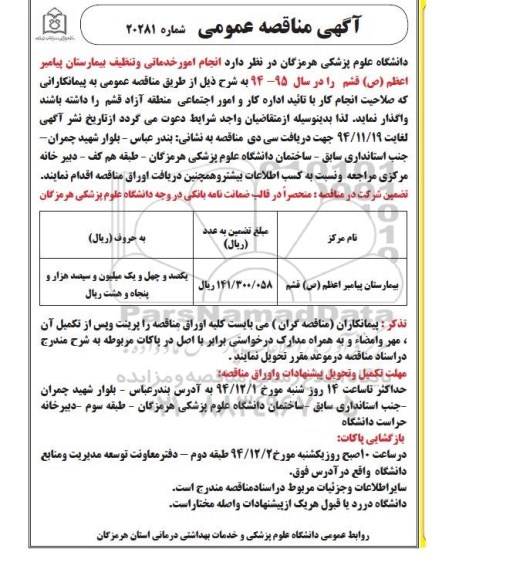 آگهی مناقصه عمومی شماره ۲۰۲۸۱
دانشگاه علوم پزشکی هرمزگان در نظر دارد انجام امورخدماتی وتنظیف بیمارستان پیامبر
اعظم (ص) قشم را در سال ۹۵- ۹۴ به شرح ذیل از طریق مناقصه عمومی به پیمانکارانی
که صلاحیت انجام کار با تائید اداره کار و امور اجتماعی منطقه آزاد قشم را داشته باشند
واگذار نماید. لذا بدینوسیله ازمتقاضیان واجد شرایط دعوت می گردد ازتاریخ نشر آگهی
لغایت ۹۴/۱۱/۱۹ جهت دریافت سی دی مناقصه به نشانی: بندر عباس - بلوار شهید چمران-
جنب استانداری سابق - ساختمان دانشگاه علوم پزشکی هرمزگان - طبقه هم کف - دبیر خانه
مرکزی مراجعه ونسبت به کسب اطلاعات بیشتروهمچنین دریافت اوراق مناقصه اقدام نمایند.
تضمین شرکت در مناقصه : منحصراً در قالب ضمانت نامه بانکی در وجه دانشگاه علوم پزشکی هرمزگان
نام مرکز مبلغ تضمین به عدد (ریال) به حروف (ریال)
بیمارستان پیامبر اعظم (ص) قشم ۱۴۱/۳۰۰/۰۵۸ ریال یکصد و چهل و یک میلیون و سیصد هزار و
پنجاه و هشت ریال
تذکر : پیمانکاران (مناقصه گران ) می بایست کلیه اوراق مناقصه را پرینت وپس از تکمیل آن
، مهر وامضاء و به همراه مدارک درخواستی برابر با اصل در پاکات مربوطه به شرح مندرج
دراسناد مناقصه درموعد مقرر تحویل نمایند .
مهلت تکمیل وتحویل پیشنهادات واوراق مناقصه:
حداکثر تاساعت ۱۴ روز شنبه مورخ ۹۴/۱۲/۱ به آدرس بندرعباس - بلوار شهید چمران
-جنب استانداری سابق -ساختمان دانشگاه علوم پزشکی هرمزگان - طبقه سوم -دبیرخانه
حراست دانشگاه
بازگشایی پاکات:
درساعت ۱۰صبح روزیکشنبه مورخ۹۴/۱۲/۲ طبقه دوم – دفترمعاونت توسعه مدیریت ومنابع
دانشگاه واقع درآدرس فوق.
سایراطلاعات وجزئیات مربوط دراسنادمناقصه مندرج است.
دانشگاه دررد یا قبول هریک ازپیشنهادات واصله مختاراست.
روابط عمومی دانشگاه علوم پزشکی و خدمات بهداشتی درمانی استان هرمزگان
ParsNamadData